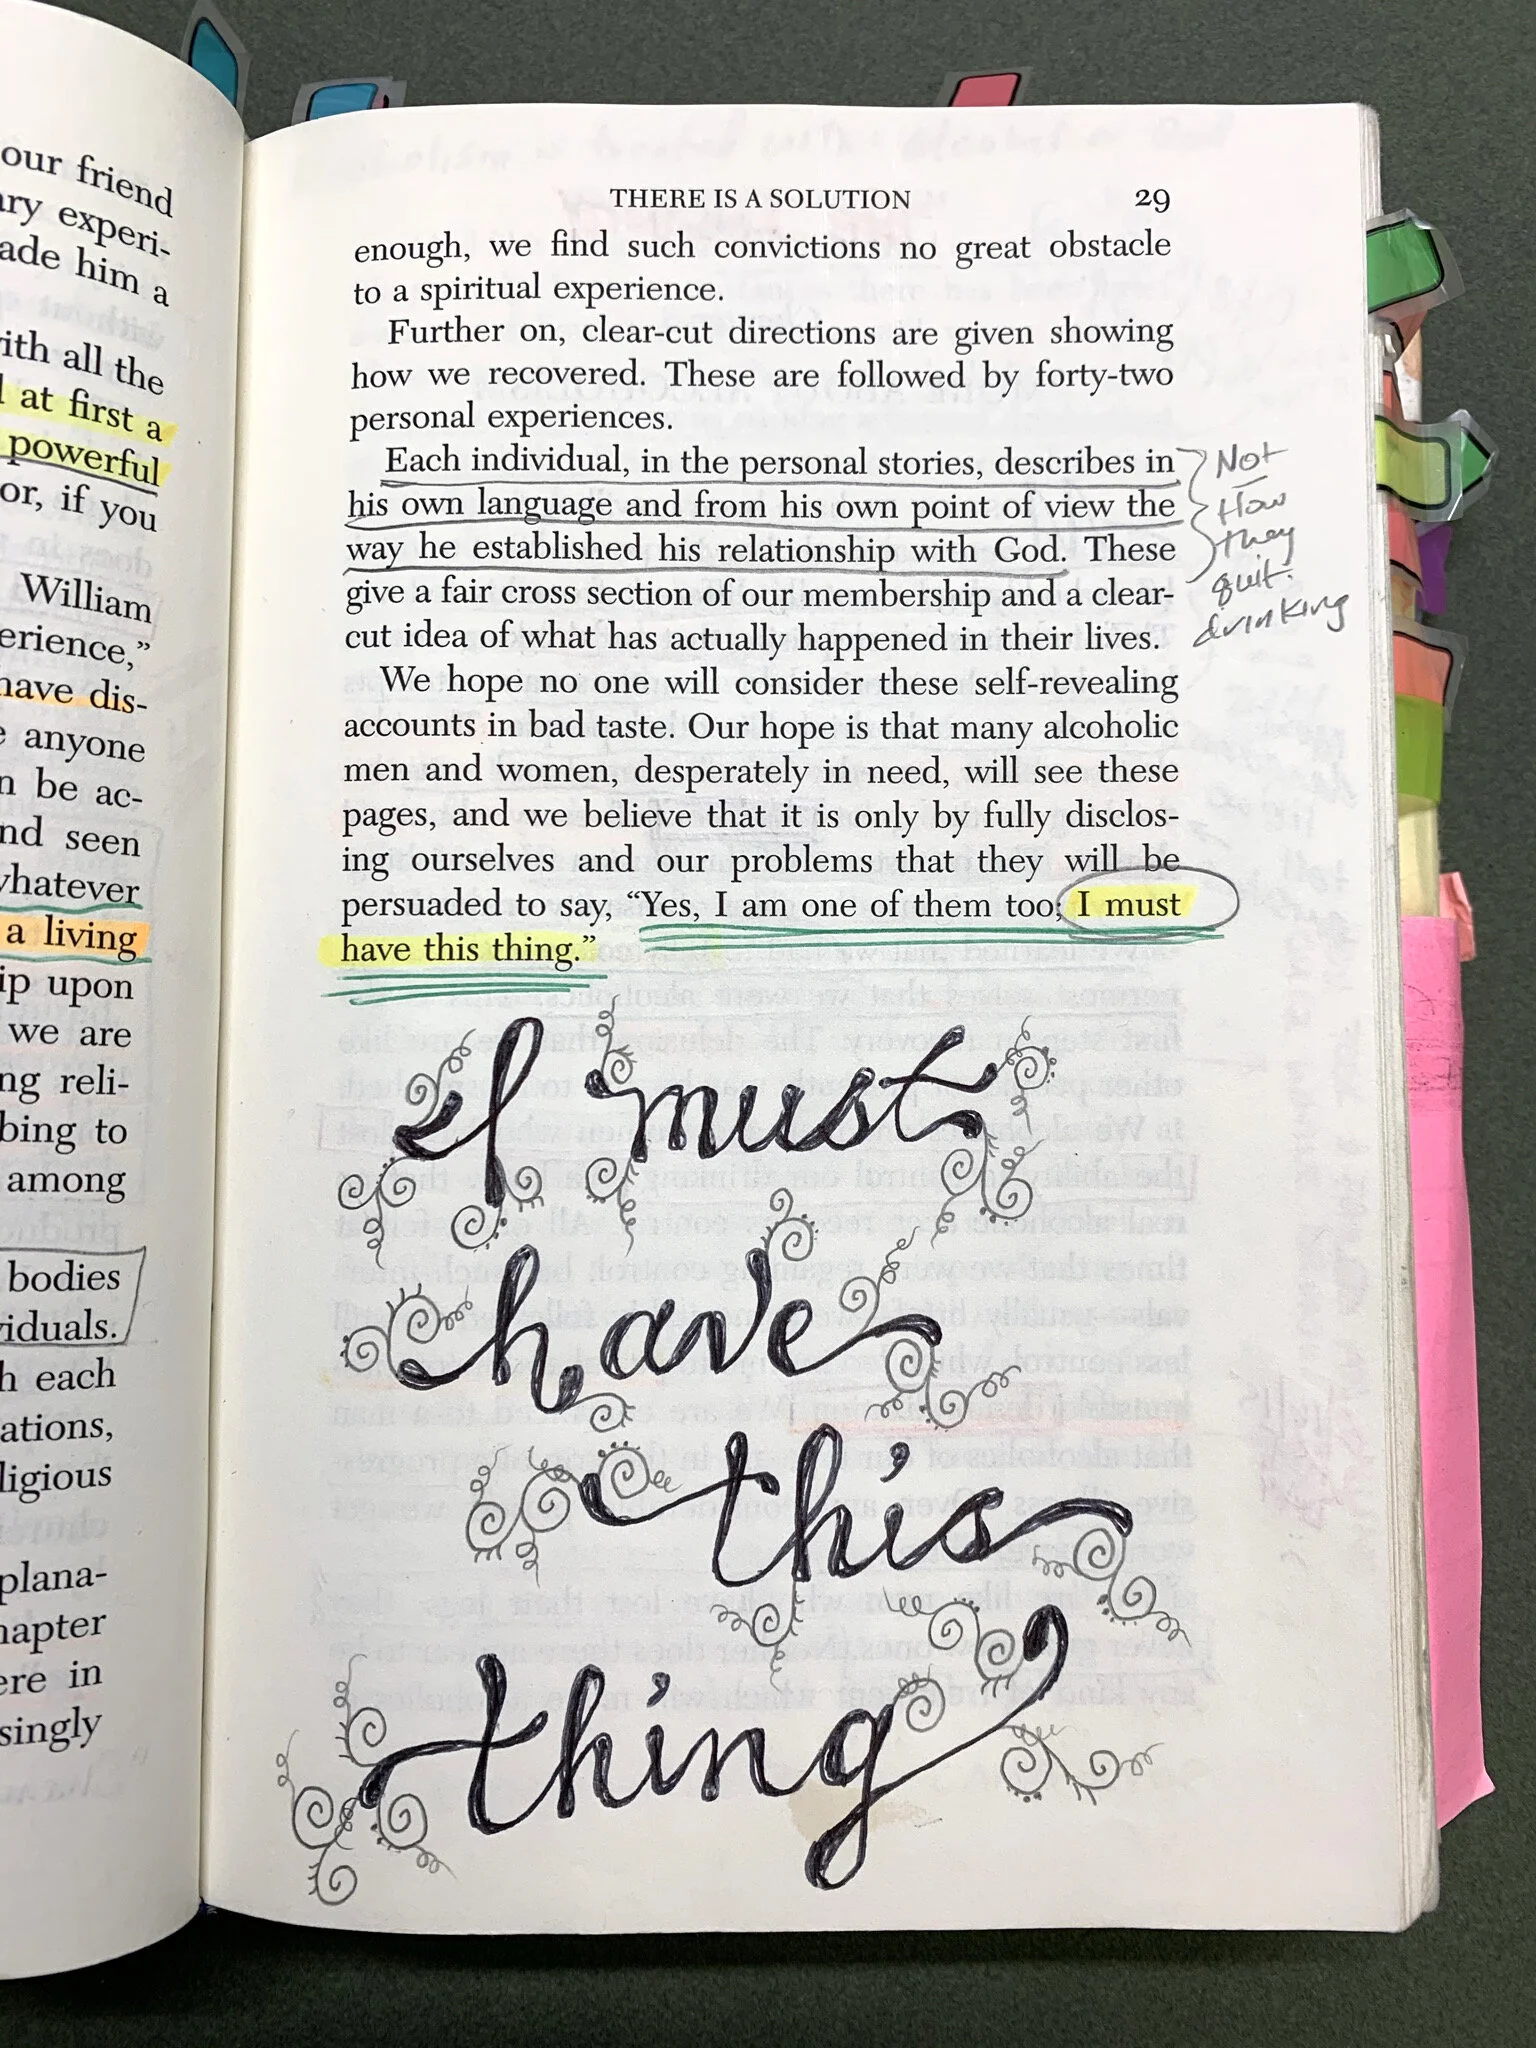 our friend
ary experi-
ade him a
with all the
at first a
powerful
or, if you
William
erience,”
have dis-
anyone
n be ac-
nd seen
whatever
a living
ip upon
we are
ng reli-
bing to
among
bodies
viduals.
h each
ations,
ligious
plana-
hapter
ere in
singly
THERE IS A SOLUTION 29
enough, we find such convictions no great obstacle
to a spiritual experience.
Further on, clear-cut directions are given showing
how we recovered. These are followed by forty-two
personal experiences.
Each individual, in the personal stories, describes in
his own language and from his own point of view the
way he established his relationship with God. These
give a fair cross section of our membership and a clear-
cut idea of what has actually happened in their lives.
We hope no one will consider these self-revealing
accounts in bad taste. Our hope is that many alcoholic
men and women, desperately in need, will see these
pages, and we believe that it is only by fully disclos-
ing ourselves and our problems that they will be
persuaded to say, “Yes, I am one of them too; I must
have this thing.”
Not
How
they
quit
drinking
I must
have
this
thing